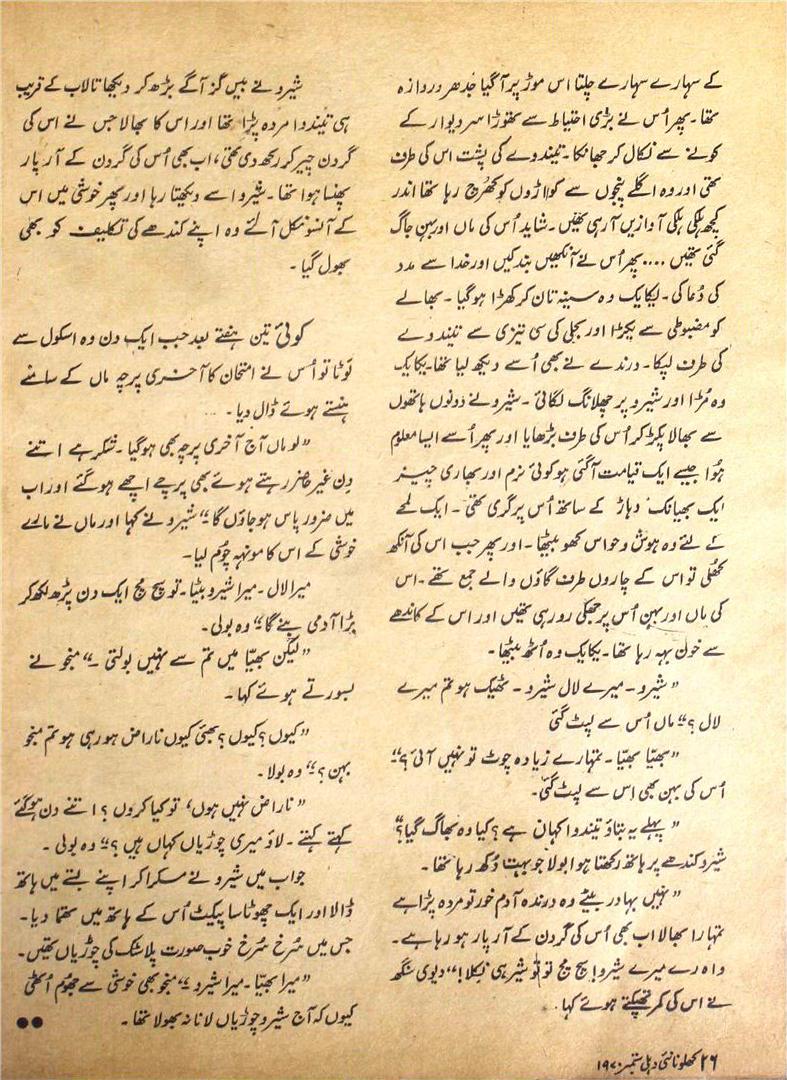 کے سہارے سہارے چلتا اس موڑ پر آ گیا جدھر دروازہ
تھا ۔ پھر اُس نے بڑی احتیاط سے تھوڑا سر دیوار کے
کونے سے نکال کر جھانکا ۔ تیندوے کی پشت اس کی طرف
تھی اور وہ اگلے پنجوں سے کواڑوں کو کھُرچ رہا تھا اندر
کچھ ہلکی ہلکی آوازیں آ رہی تھیں ۔ شاید اُس کی ماں اور بہن جاگ
گئی تھیں .... پھر اُس نے آنکھیں بند کیں اور خدا سے مدد
کی دُعا کی ۔ یکایک وہ سینہ تان کر کھڑا ہو گیا ۔ بھالے
کو مضبوطی سے پکڑا اور بجلی کی سی تیزی سے تیندوے
کی طرف لپکا ۔ درندے نے بھی اُسے دیکھ لیا تھا ۔ یکایک
وہ مُڑا اور شیرو پر چھلانگ لگائی ۔ شیرو نے دونوں ہاتھوں
سے بھالا پکڑ کر اُس کی طرف بڑھایا اور پھر اُسے ایسا معلوم
ہُوا جیسے ایک قیامت آ گئی ہو کوئی نرم اور بھاری چیز
ایک بھیانک دہاڑ کے ساتھ اُس پر گری تھی ۔ ایک لمحے
کے لئے وہ ہوش و حواس کھو بیٹھا ۔ اور پھر جب اس کی آنکھ
کھُلی تو اس کے چاروں طرف گاؤں والے جمع تھے ۔ اس
کی ماں اور بہن اُس پر جھکی رو رہی تھیں اور اس کے کاندھے
سے خون بہہ رہا تھا ۔ یکایک وہ اُٹھ بیٹھا ۔
”شیرو ۔ میرے لال شیرو ۔ ٹھیک ہو تم میرے
لال ؟“ ماں اُس سے لپٹ گئی
”بھیّا بھیّا ۔ تمہارے زیادہ چوٹ تو نہیں آئی ؟“
اُس کی بہن بھی اس سے لپٹ گئی ۔
”پہلے یہ بتاؤ تیندوا کہان ہے ؟ کیا وہ بھاگ گیا ؟“
شیرو کندھے پر ہاتھ رکھتا ہوا بولا جو بہت دُکھ رہا تھا ۔
”نہیں بہادر بیٹے وہ درندہ آدم خور تو مردہ پڑا ہے
تمہارا بھالا اب بھی اُس کی گردن کے آر پار ہو رہا ہے ۔
واہ رے میرے شیرو ! سچ مچ تو تُو شیر ہی نکلا !“ دیوی سنگھ
نے اس کی کمر تھپکتے ہوئے کہا ۔
شیرو نے بیس گز آگے بڑھ کر دیکھا تالاب کے قریب
ہی تیندوا مردہ پڑا تھا اور اس کا بھالا جس نے اس کی
گردن چیر کر رکھ دی تھی ، اب بھی اُس کی گردن کے آر پار
پھنسا ہوا تھا ۔ شیرو اسے دیکھتا رہا اور پھر خوشی میں اس
کے آنسو نکل آئے وہ اپنے کندھے کی تکلیف کو بھی
بھول گیا ۔
کوئی تین ہفتے بعد جب ایک دن وہ اسکول سے
لَوٹا تو اُس نے امتحان کا آخری پرچہ ماں کے سامنے
ہنستے ہوئے ڈال دیا ۔
”لو ماں آج آخری پرچہ بھی ہو گیا ۔ شکر ہے اتنے
دن غیر حاضر رہتے ہوئے بھی پرچے اچھے ہو گئے اور اب
میں ضرور پاس ہو جاؤں گا“ شیرو نے کہا اور ماں نے مارے
خوشی کے اس کا مونہہ چُوم لیا ۔
میرا لال ۔ میرا شیرو بیٹا ۔ تو سچ مچ ایک دن پڑھ لکھ کر
بڑا آدمی بنے گا“ وہ بولی ۔
”لیکن بھیّا میں تم سے نہیں بولتی ۔“ منجو نے
بسورتے ہوئے کہا ۔
”کیوں ؟ کیوں ؟ بھئی کیوں ناراض ہو رہی ہو تم منجو
بہن ؟“ وہ بولا ۔
”ناراض نہیں ہوں ، تو کیا کروں ؟ اتنے دن ہو گئے
کہتے کہتے ۔ لاؤ میری چوڑیاں کہاں ہیں ؟“ وہ بولی ۔
جواب میں شیرو نے مسکرا کر اپنے بستے میں ہاتھ
ڈالا اور ایک چھوٹا سا پیکٹ اُس کے ہاتھ میں تھما دیا ۔
جس میں سُرخ سُرخ خوب صورت پلاسٹک کی چوڑیاں تھیں ۔
”میرا بھیّا ۔ میرا شیرو ۔“ منجو بھی خوشی سے جھُوم اُٹھی
کیوں کہ آج شیرو چوڑیاں لانا نہ بھولا تھا ۔
۲۶ کھلونا نئی دہلی ستمبر ۱۹۷۰